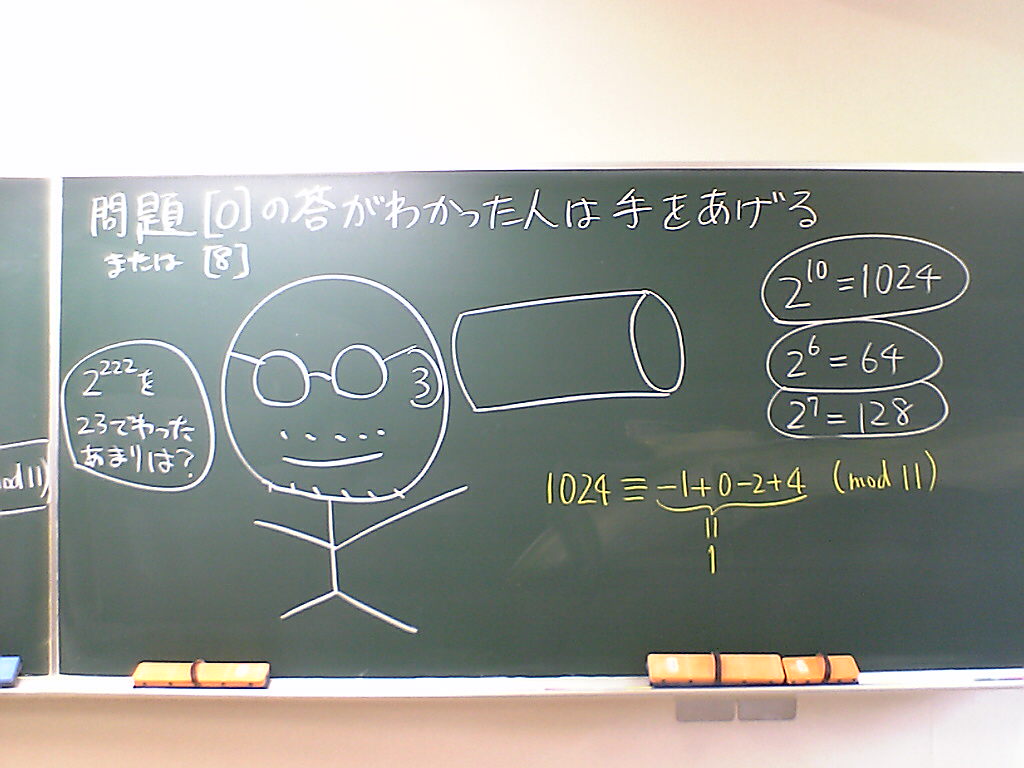 問題[0]の答がわかった人は手をあげる
または[8]
2^222を
23でわった
あまりは?
2^10=1024
2^6=64
2^7=128
1024≡-1+0-2+4 (mod 11)
=
1
mod 11)